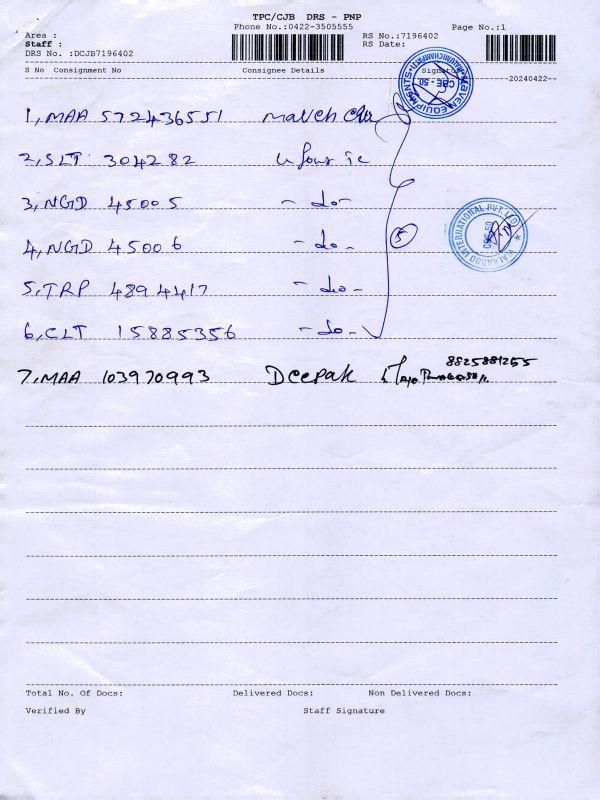 TPC/CJB DRS - PNP
Phone No.:0422-3505555 Page No.:1
Area : RS No.:7196402
Staff : RS Date:
DRS No. :DCJB7196402
S No Consignment No Consignee Details Signature
--20240422--
1, MAA 572436551 Maven
2, SLT 304282
3, NGD 45005 - do -
4, NGD 45006 - do -
5, TRP 4894417 - do -
6, CLT 15885356 - do -
5
MAVEN EQUIPMENTS
CBE - 50
INTERNATIONAL PVT. LTD.
7, MAA 103970993 Deepak
8825881255
Total No. Of Docs: Delivered Docs: Non Delivered Docs:
Verified By Staff Signature